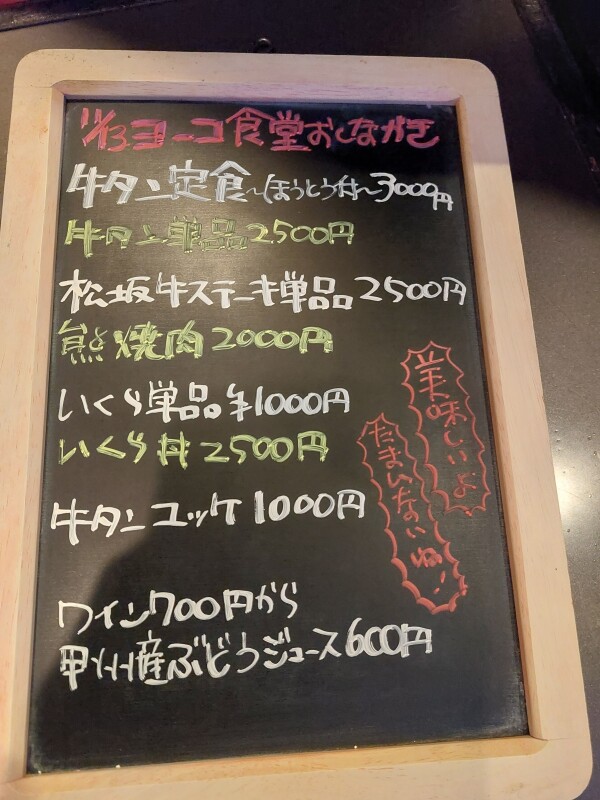 11/13ヨーコ食堂おしながき
牛タン定食〜ほうとう付〜3000円
牛タン単品2500円
松坂牛ステーキ単品2500円
熊焼肉2000円
いくら単品¥1000円
いくら丼2500円
牛タンユッケ1000円
美味しいよ
たまんないね!
ワイン700円から
甲州産ぶどうジュース600円